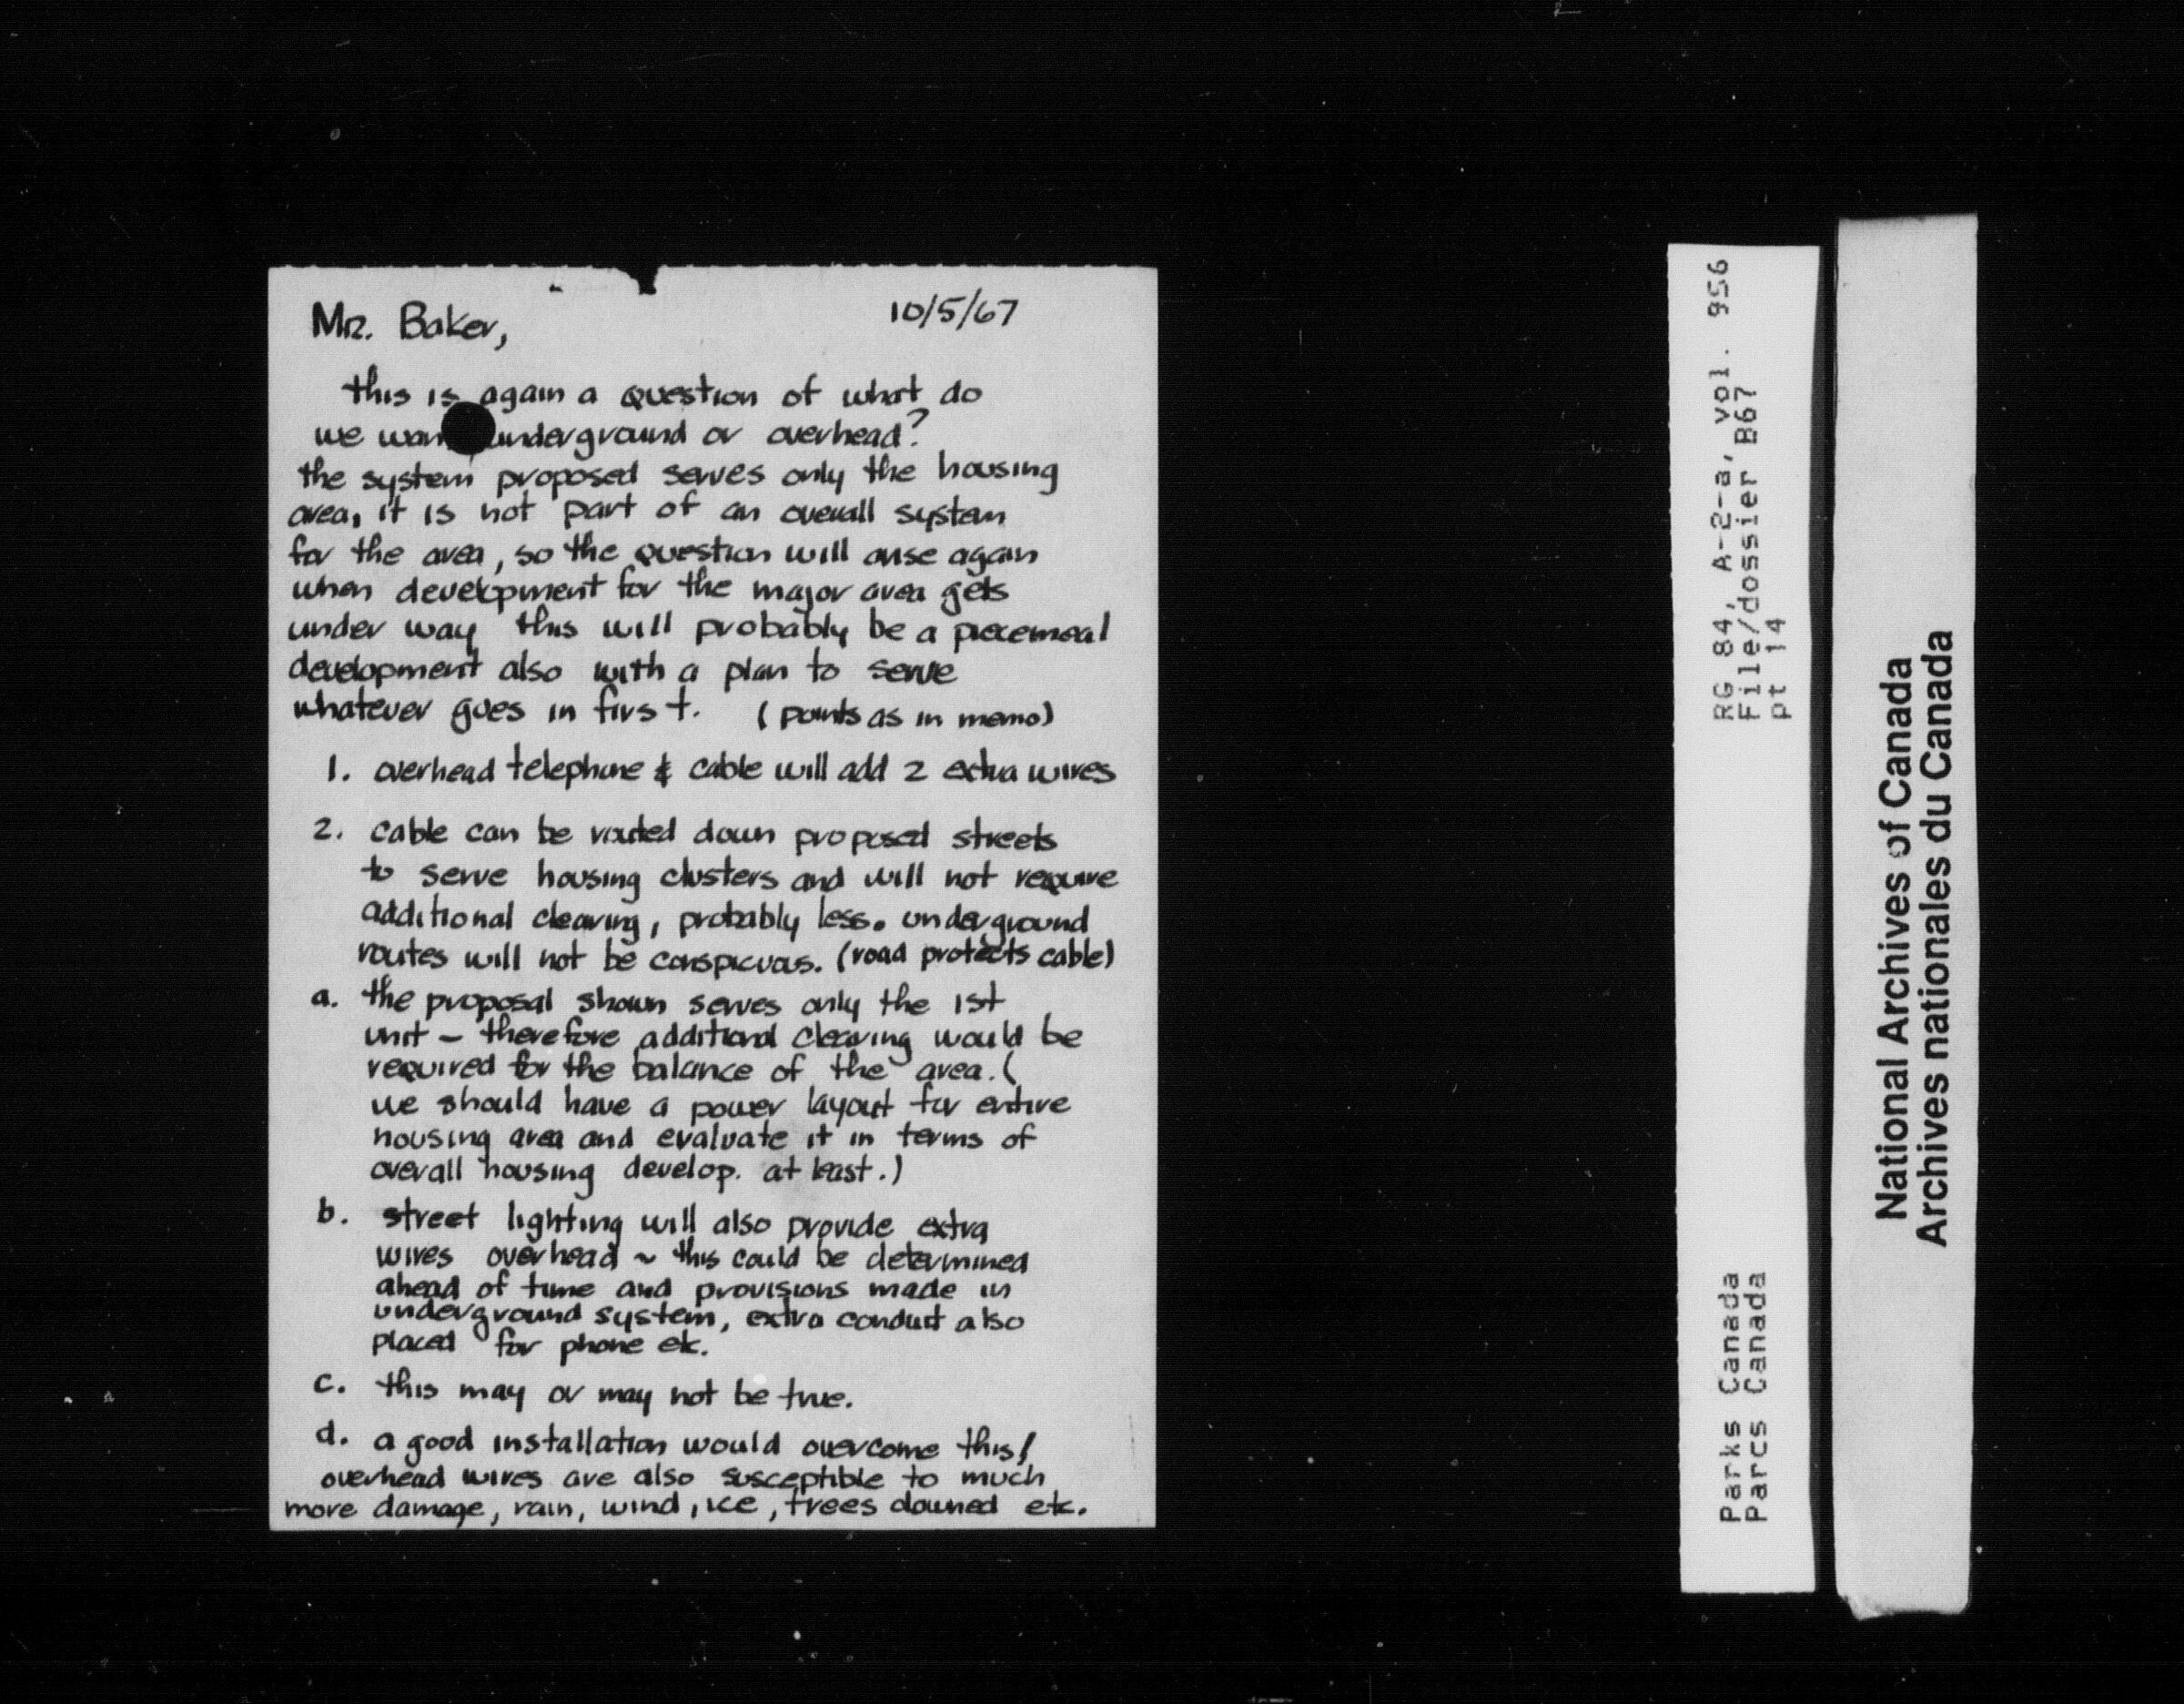 Mr. Baker,
10/5/67
this is again a question of what do
we wan underground or overhead?
the system proposed serves only the housing
area, it is not part of an overall system
for the area, so the question will arise again
when development for the major area gets
under way this will probably be a piecemeal
development also with a plan to serve
whatever goes in first. (points as in memo)
1. overhead telephone & cable will add 2 extra wires
2. cable can be routed down proposed streets
to serve housing clusters and will not require
additional clearing, probably less. underground
routes will not be conspicuous. (road protects cable)
a. the proposal shown serves only the 1st
unit - therefore additional clearing would be
required for the balance of the area. (
we should have a power layout for entire
housing area and evaluate it in terms of
overall housing develop. at least.)
b. street lighting will also provide extra
wires overhead ~ this could be determined
ahead of time and provisions made in
underground system, extra conduit also
placed for phone etc.
c. this may or may not be true.
d. a good installation would overcome this!
overhead wires are also susceptible to much
more damage, rain, wind, ice, trees downed etc.
RG 84, A-2-a, vol. 956
File/dossier B67
pt 14
Parks Canada
Parcs Canada
National Archives of Canada
Archives nationales du Canada